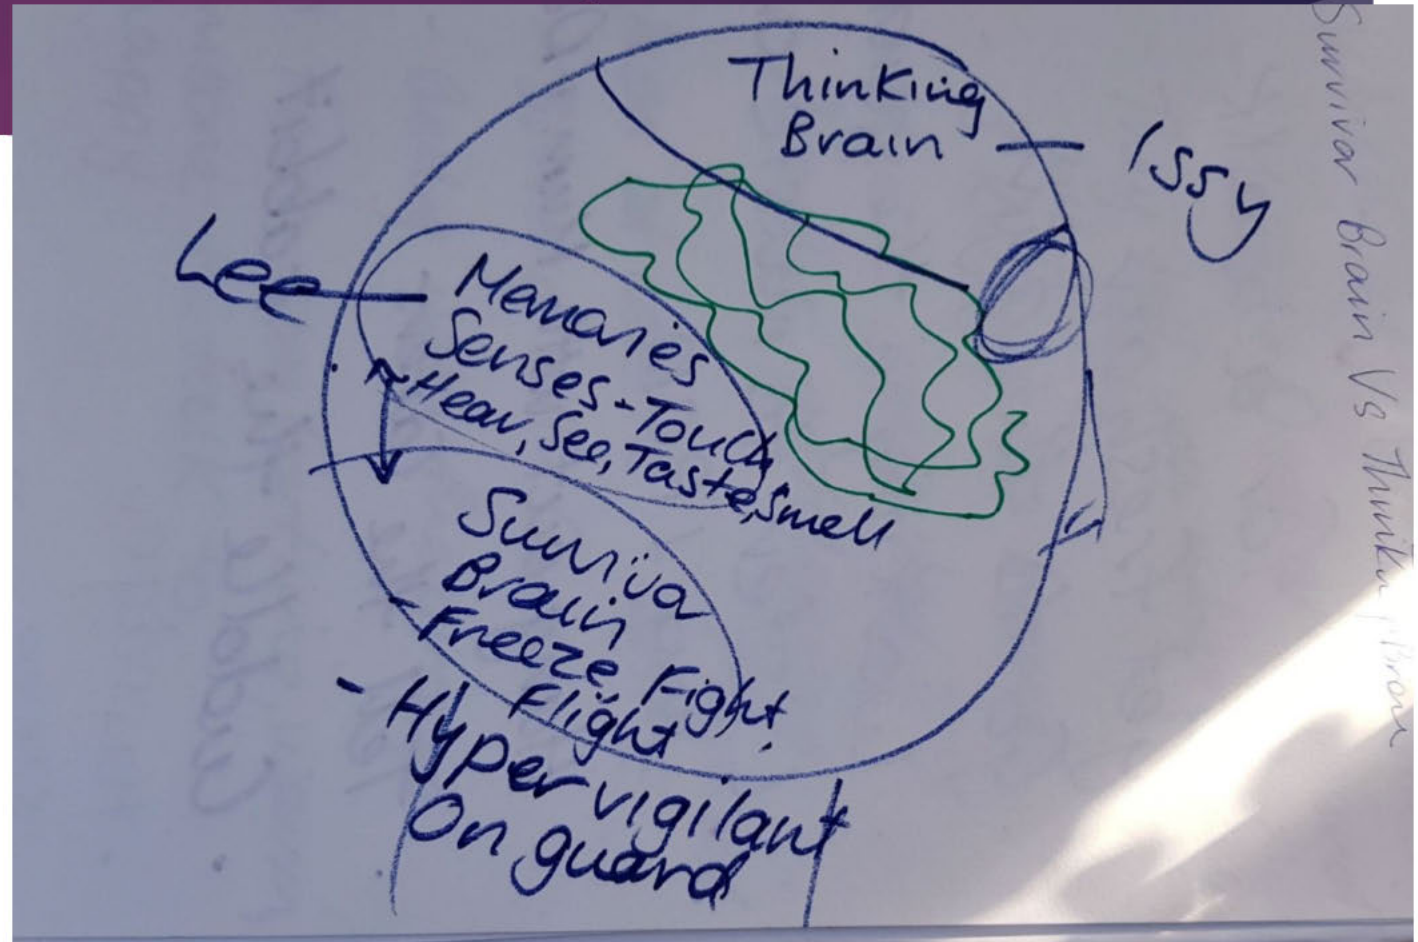 Thinking
Brain
Issy
Lee
Memories
Senses - Touch,
Hear, See, Taste, Smell
Survivor
Brain
- Freeze, Fight
Flight.
- Hyper vigilant
On guard
Survivor Brain Vs Thinking Brain